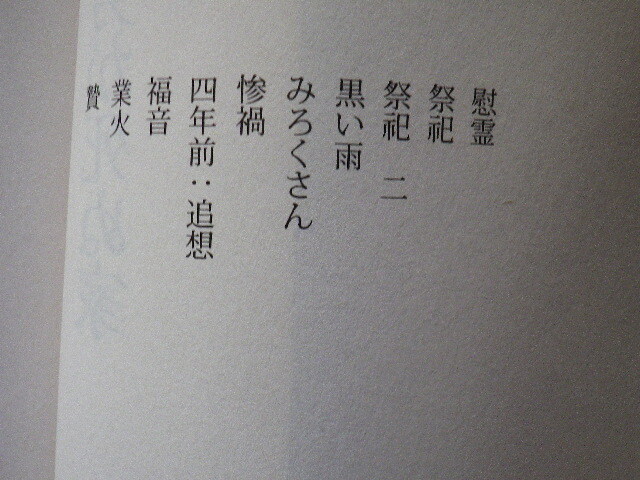 慰霊
祭祀
祭祀 二
黒い雨
みろくさん
惨禍
四年前：追想
福音
業火
贄